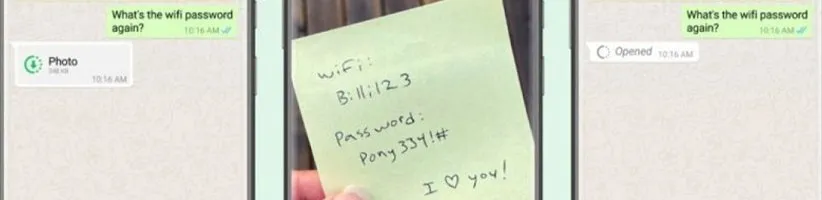 What's the wifi password
again?
10:16 AM
Photo
10:16 AM
wifi:
Billi123
Password:
Pony334!#
I ♡ you!
What's the wifi password
again?
10:16 AM
Opened 10:16 AM